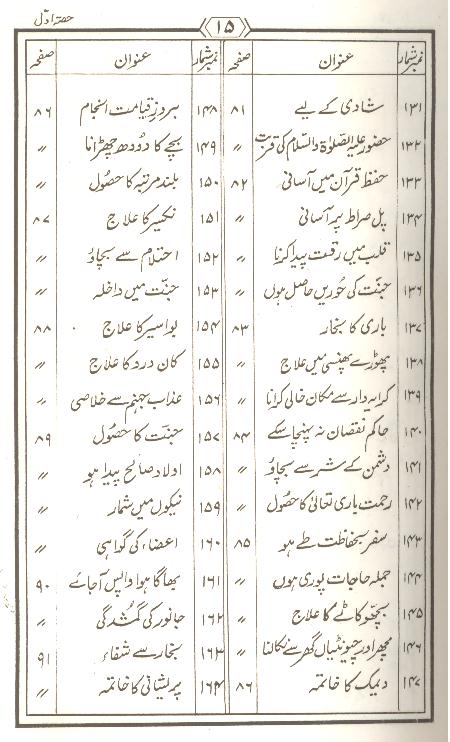 حصّہ اوّل
۱۵
نمبر شمار عنوان صفحہ
۱۳۱ شادی کے لیے ۸۱
۱۳۲ حضور علیہ الصلوٰۃ والسلام کی قربت 〃
۱۳۳ حفظ قرآن میں آسانی ۸۲
۱۳۴ پل صراط پر آسانی 〃
۱۳۵ قلب میں رقت پیدا کرنا 〃
۱۳۶ جنّت کی حُوریں حاصل ہوں 〃
۱۳۷ باری کا بخار ۸۳
۱۳۸ پھوڑے پھنسی میں علاج 〃
۱۳۹ کرایہ دار سے مکان خالی کرانا 〃
۱۴۰ حاکم نقصان نہ پہنچا سکے ۸۴
۱۴۱ دشمن کے شر سے بچاؤ 〃
۱۴۲ رحمت باری تعالیٰ کا حصُول 〃
۱۴۳ سفر بحفاظت طے ہو ۸۵
۱۴۴ جملہ حاجات پوری ہوں 〃
۱۴۵ بچھّو کاٹے کا علاج 〃
۱۴۶ مچھر اور چیونٹیاں گھر سے نکالنا 〃
۱۴۷ دیمک کا خاتمہ ۸۶
نمبر شمار عنوان صفحہ
۱۴۸ بروز قیامت انجام ۸۶
۱۴۹ بچے کا دُودھ چھڑانا 〃
۱۵۰ بلند مرتبہ کا حصُول 〃
۱۵۱ نکسیر کا علاج ۸۷
۱۵۲ احتلام سے بچاؤ 〃
۱۵۳ جنّت میں داخلہ 〃
۱۵۴ بواسیر کا علاج ۸۸
۱۵۵ کان درد کا علاج 〃
۱۵۶ عذاب جہنم سے خلاصی 〃
۱۵۷ جنّت کا حصُول ۸۹
۱۵۸ اولاد صالح پیدا ہو 〃
۱۵۹ نیکوں میں شمار 〃
۱۶۰ اعضاء کی گواہی 〃
۱۶۱ بھاگا ہوا واپس آجائے ۹۰
۱۶۲ جانور کی گمشُدگی 〃
۱۶۳ بخار سے شفاء ۹۱
۱۶۴ پریشانی کا خاتمہ 〃